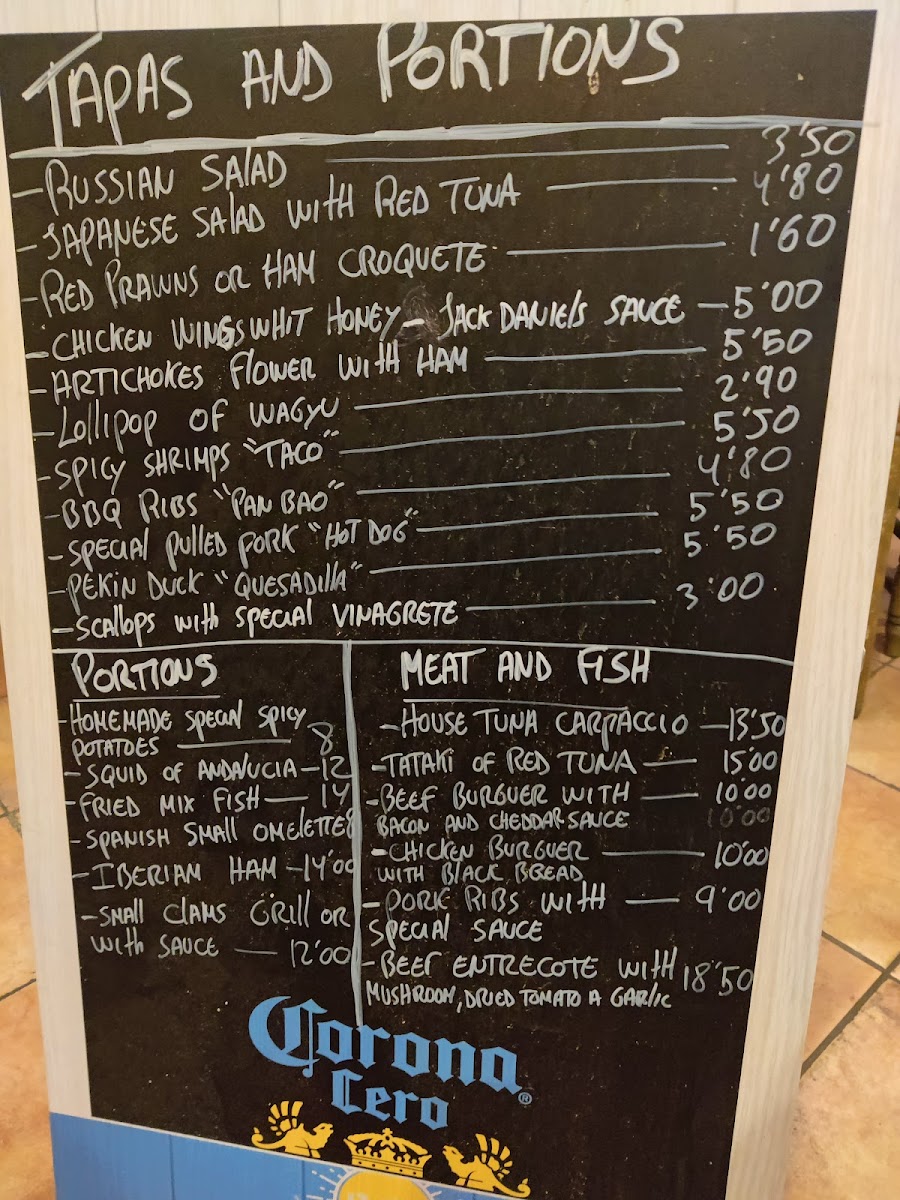 TAPAS AND PORTIONS
- RUSSIAN SALAD 3'50
- JAPANESE SALAD WITH RED TUNA 4'80
- RED PRAWNS OR HAM CROQUETE 1'60
- CHICKEN WINGS WHIT HONEY - JACK DANIELS SAUCE - 5'00
- ARTICHOKES FLOWER WITH HAM 5'50
- LOLLIPOP OF WAGYU 2'90
- SPICY SHRIMPS "TACO" 5'50
- BBQ RIBS "PAN BAO" 4'80
- SPECIAL PULLED PORK "HOT DOG" 5'50
- PEKIN DUCK "QUESADILLA" 5'50
- SCALLOPS WITH SPECIAL VINAGRETE 3'00
PORTIONS
- HOMEMADE SPECIAL SPICY
POTATOES 8
- SQUID OF ANDALUCIA - 12
- FRIED MIX FISH - 14
- SPANISH SMALL OMELETTE 8
- IBERIAN HAM - 14'00
- SMALL CLAMS GRILL OR
WITH SAUCE - 12'00
MEAT AND FISH
- HOUSE TUNA CARPACCIO - 13'50
- TATAKI OF RED TUNA - 15'00
- BEEF BURGUER WITH - 10'00
BACON AND CHEDDAR SAUCE 10'00
- CHICKEN BURGUER - 10'00
WITH BLACK BREAD
- PORK RIBS WITH - 9'00
SPECIAL SAUCE
- BEEF ENTRECOTE WITH 18'50
MUSHROOM, DRIED TOMATO A GARLIC
Corona
Cero
®